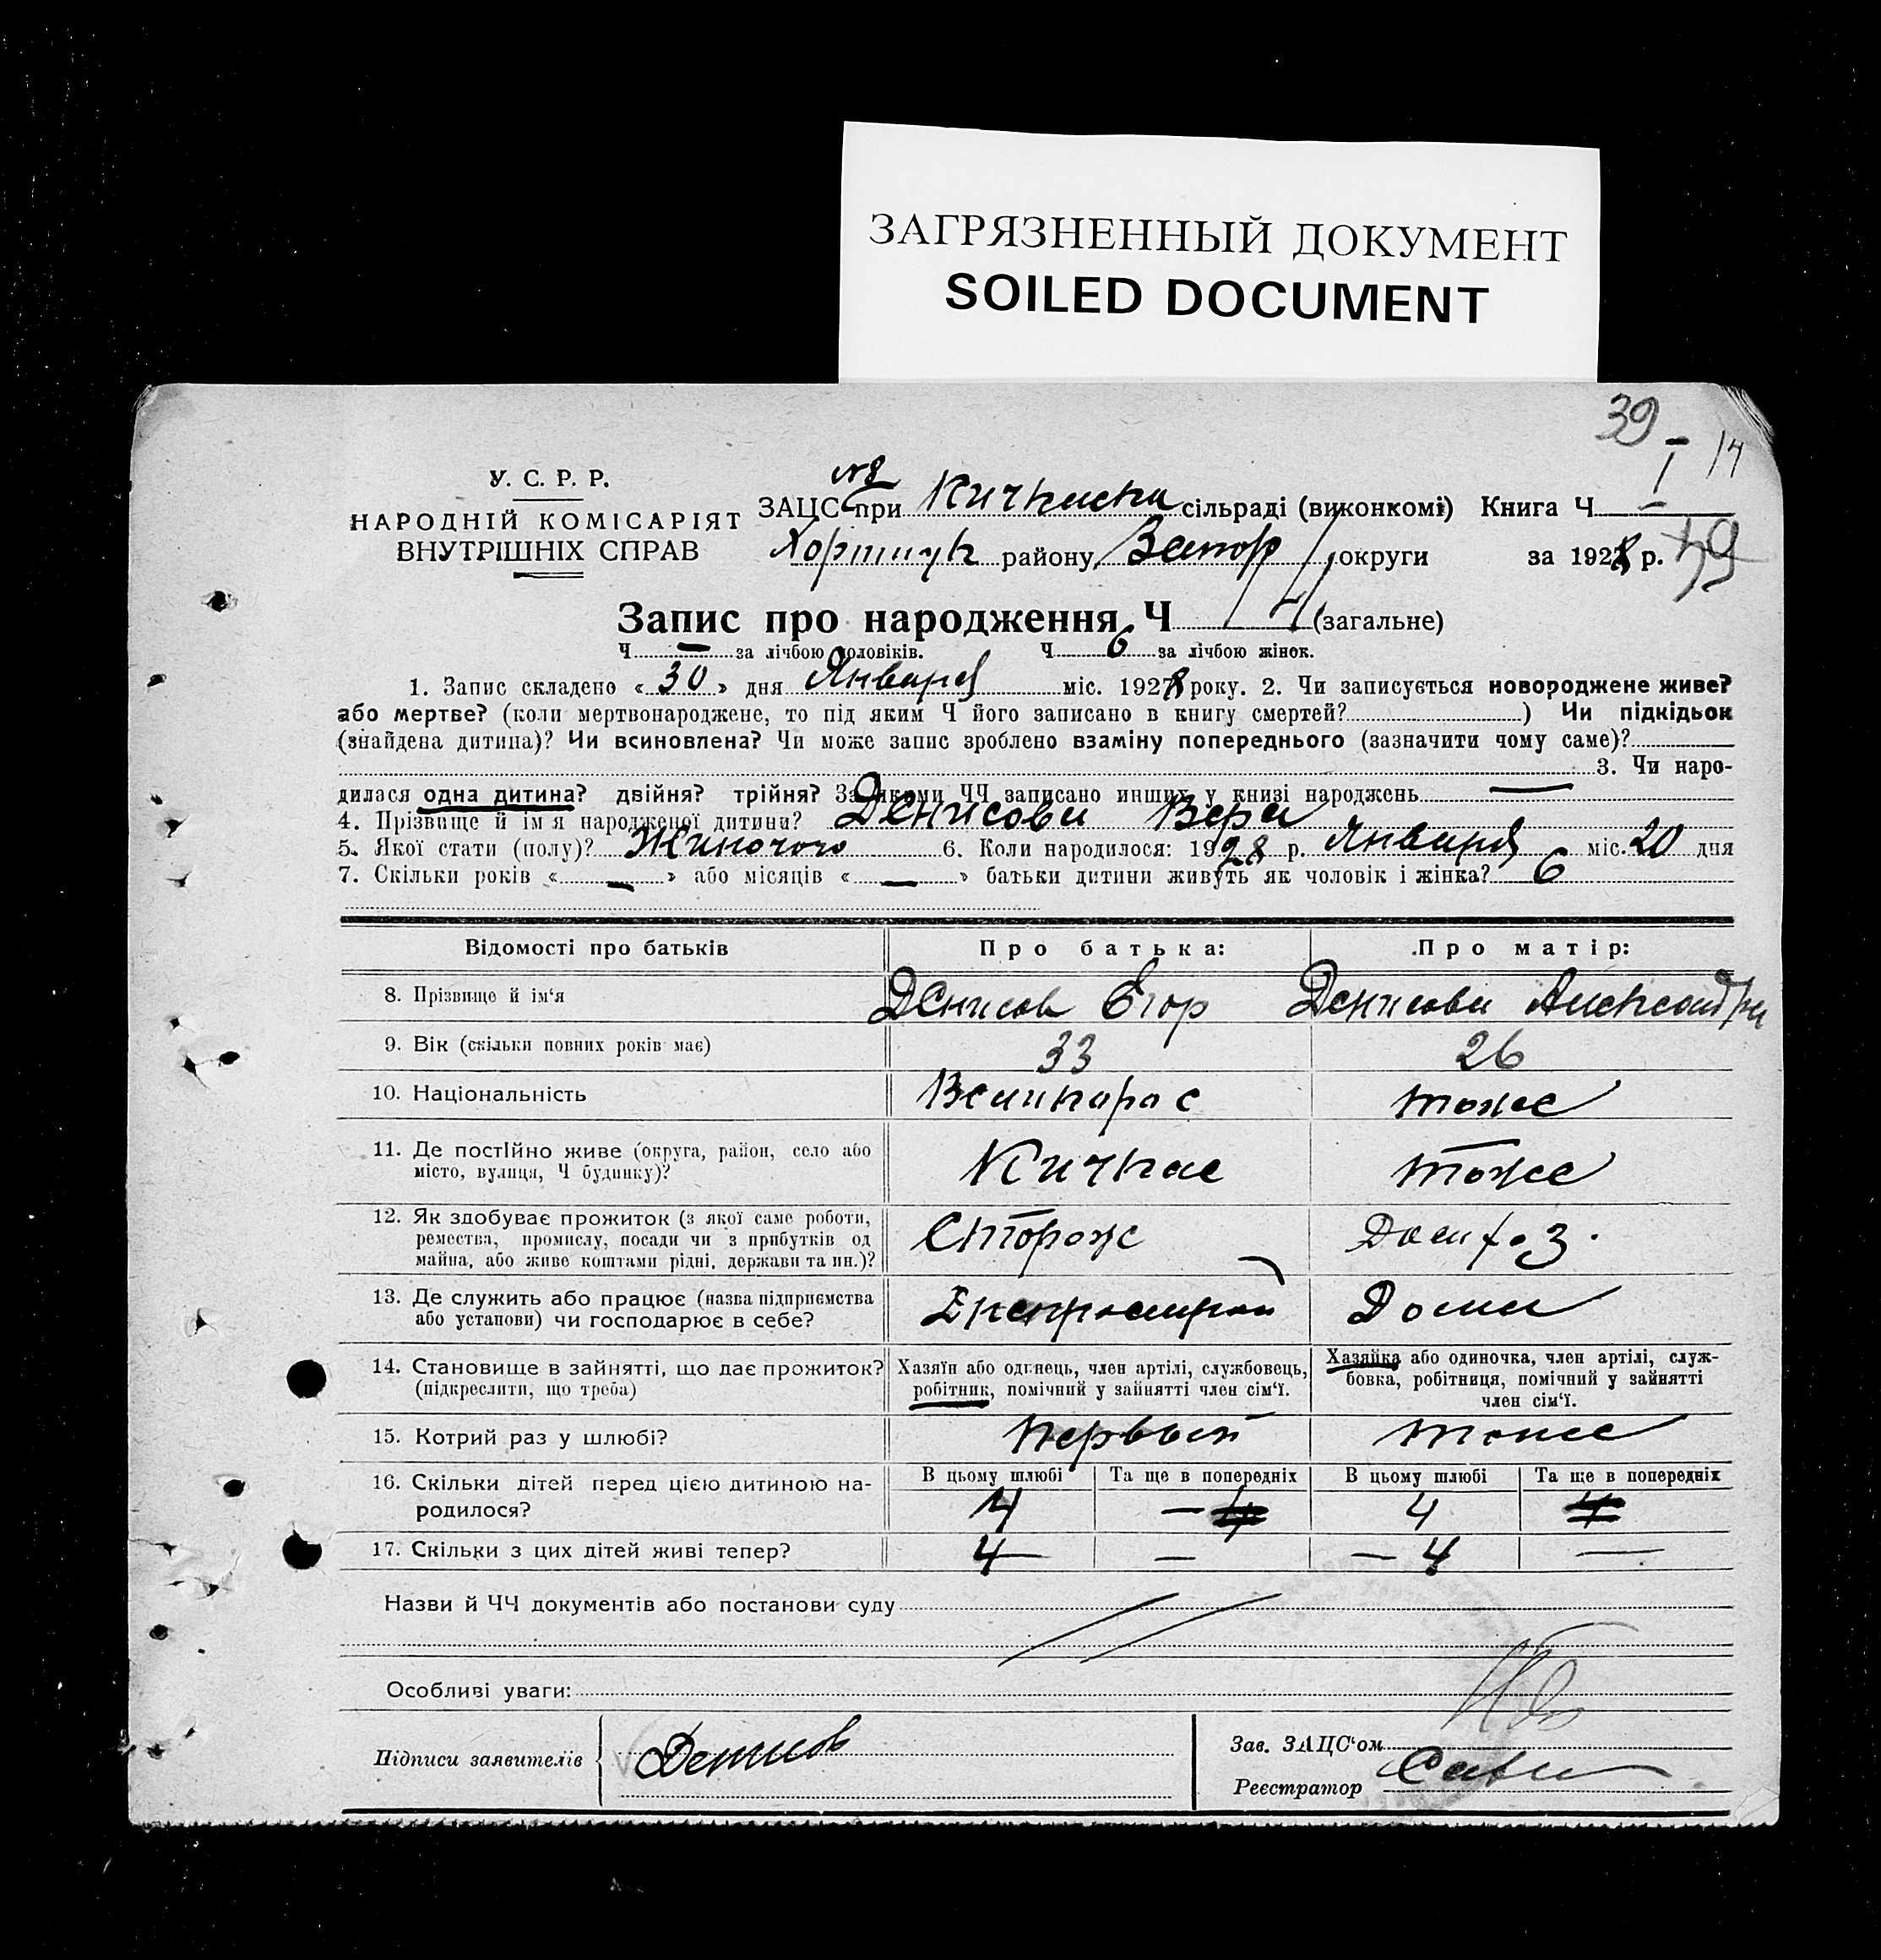 ЗАГРЯЗНЕННЫЙ ДОКУМЕНТ
SOILED DOCUMENT
39
I 14
У. С. Р. Р.
НАРОДНІЙ КОМІСАРІЯТ
ВНУТРІШНІХ СПРАВ
№8
ЗАЦС при Кичкаска сільраді (виконкомі) Книга Ч I
Хортицк району, Запор округи за 1928 р.
Запис про народження Ч 14 (загальне)
Ч — за лічбою чоловіків. Ч 6 за лічбою жінок.
1. Запис складено « 30 » дня Января міс. 1928 року. 2. Чи записується новороджене живе?
або мертве? (коли мертвонароджене, то під яким Ч його записано в книгу смертей? ) Чи підкідьок
(знайдена дитина)? Чи всиновлена? Чи може запис зроблено взаміну попереднього (зазначити чому саме)?
3. Чи наро-
дилася одна дитина? двійня? трійня? За якими ЧЧ записано инших у книзі народжень —
4. Прізвище й ім'я народженої дитини? Денисова Вера
5. Якої стати (полу)? Жиночого 6. Коли народилося: 1928 р. Января міс. 20 дня
7. Скільки років « — » або місяців « — » батьки дитини живуть як чоловік і жінка? 6
Відомості про батьків Про батька: Про матір:
8. Прізвище й ім'я Денисов Егор Денисова Александра
9. Вік (скільки повних років має) 33 26
10. Національність Великорос тоже
11. Де постійно живе (округа, район, село або
місто, вулиця, Ч будинку)? Кичкас тоже
12. Як здобуває прожиток (з якої саме роботи,
ремества, промислу, посади чи з прибутків од
майна, або живе коштами рідні, держави та ин.)? Сторож Дом х. з.
13. Де служить або працює (назва підприємства
або установи) чи господарює в себе? Дома
14. Становище в зайнятті, що дає прожиток?
(підкреслити, що треба)
Хазяїн або одинець, член артілі, службовець,
робітник, помічний у зайнятті член сім'ї.
Хазяйка або одиночка, член артілі, служ-
бовка, робітниця, помічний у зайнятті
член сім'ї.
15. Котрий раз у шлюбі? первый тоже
В цьому шлюбі Та ще в попередніх В цьому шлюбі Та ще в попередніх
16. Скільки дітей перед цією дитиною на-
родилося? 4 — 4 4 4
17. Скільки з цих дітей живі тепер? 4 — — 4 —
Назви й ЧЧ документів або постанови суду
Особливі уваги:
Підписи заявителів Денисов
Зав. ЗАЦС'ом
Реєстратор